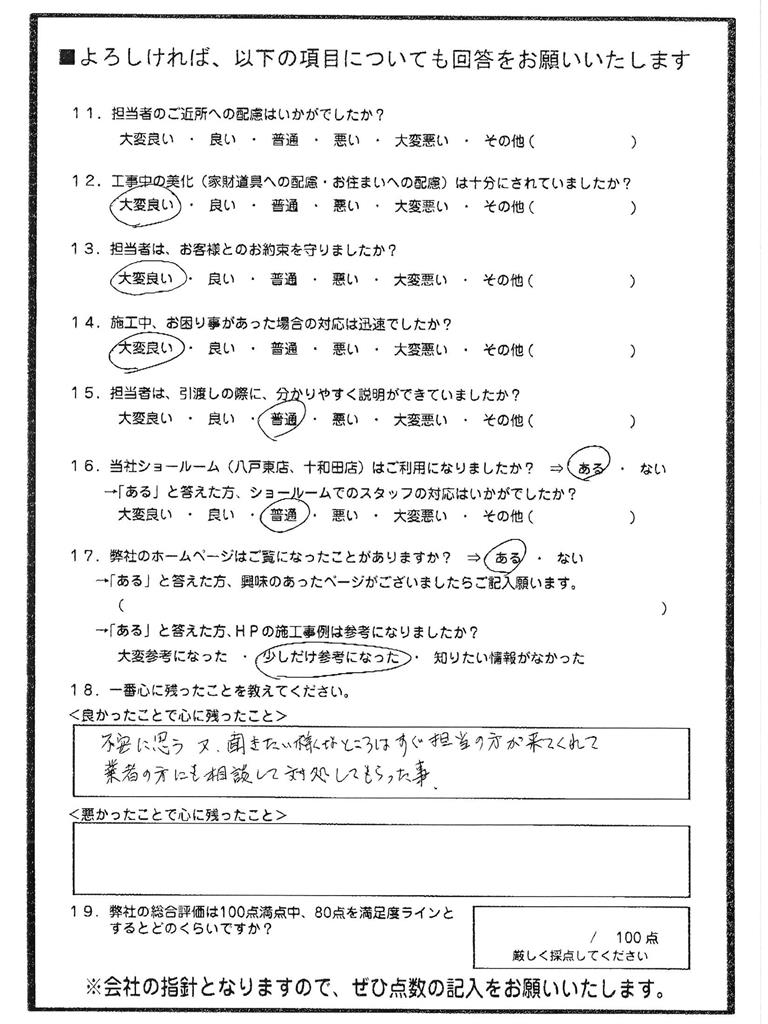 ■よろしければ、以下の項目についても回答をお願いいたします
11．担当者のご近所への配慮はいかがでしたか？
大変良い ・ 良い ・ 普通 ・ 悪い ・ 大変悪い ・ その他（ ）
12．工事中の美化（家財道具への配慮・お住まいへの配慮）は十分にされていましたか？
大変良い ・ 良い ・ 普通 ・ 悪い ・ 大変悪い ・ その他（ ）
13．担当者は、お客様とのお約束を守りましたか？
大変良い ・ 良い ・ 普通 ・ 悪い ・ 大変悪い ・ その他（ ）
14．施工中、お困り事があった場合の対応は迅速でしたか？
大変良い ・ 良い ・ 普通 ・ 悪い ・ 大変悪い ・ その他（ ）
15．担当者は、引渡しの際に、分かりやすく説明ができていましたか？
大変良い ・ 良い ・ 普通 ・ 悪い ・ 大変悪い ・ その他（ ）
16．当社ショールーム（八戸東店、十和田店）はご利用になりましたか？ ⇒ ある ・ ない
→「ある」と答えた方、ショールームでのスタッフの対応はいかがでしたか？
大変良い ・ 良い ・ 普通 ・ 悪い ・ 大変悪い ・ その他（ ）
17．弊社のホームページはご覧になったことがありますか？ ⇒ ある ・ ない
→「ある」と答えた方、興味のあったページがございましたらご記入願います。
（ ）
→「ある」と答えた方、HPの施工事例は参考になりましたか？
大変参考になった ・ 少しだけ参考になった ・ 知りたい情報がなかった
18．一番心に残ったことを教えてください。
＜良かったことで心に残ったこと＞
不安に思う 又、聞きたい様なところはすぐ担当の方が来てくれて
業者の方にも相談して対処してもらった事、
＜悪かったことで心に残ったこと＞
19．弊社の総合評価は100点満点中、80点を満足度ラインと
するとどのくらいですか？
/ 100点
厳しく採点してください
※会社の指針となりますので、ぜひ点数の記入をお願いいたします。